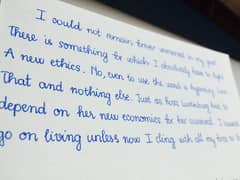 I could not remain forever immersed in my grief.
There is something for which I absolutely have to fight.
A new ethics. No, even to use the word is beginning
That and nothing else. Just as Rosa Luxemburg had to
depend on her new economics for her survival. I cannot
go on living unless now I cling with all my force to